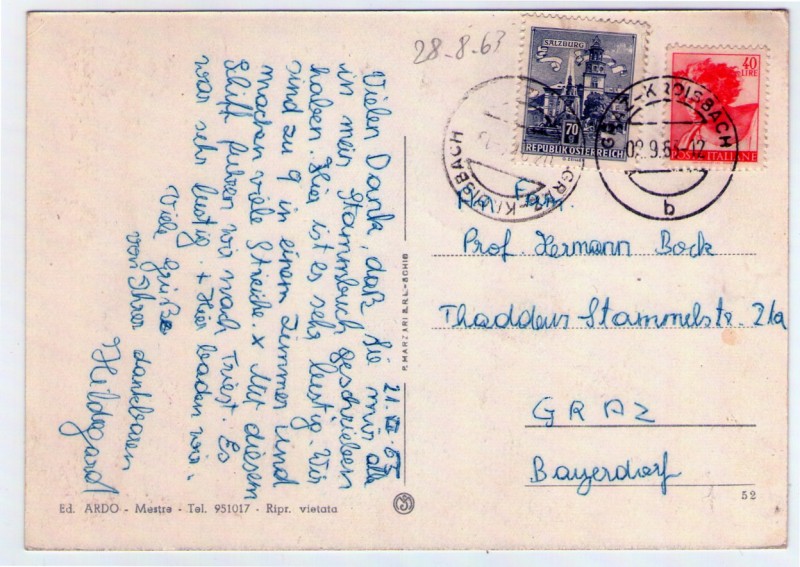 28-8-63
SALZBURG
70 g
REPUBLIK ÖSTERREICH
40
LIRE
POSTE ITALIANE
GRAZ-KROISBACH
GRAZ-KROISBACH
02.9.63-12
b
21. 63
Vielen Dank, daß Sie mir
in mein Stammbuch geschrieben
haben. Hier ist es sehr lustig. Wir
sind zu 9 in einem Zimmer und
machen viele Streiche. x Mit diesen
Schiff fuhren wir nach Triest. Es
war sehr lustig. + Hier baden wir.
Viele Grüße
von Ihrer dankbaren
Hildegard
Fam.
Prof. Hermann Bock
Thaddeus Stammelstr. 21a
GRAZ
Bayerdorf
P. MARZARI S.R.L. - SCHIO
Ed. ARDO - Mestre - Tel. 951017 - Ripr. vietata
52